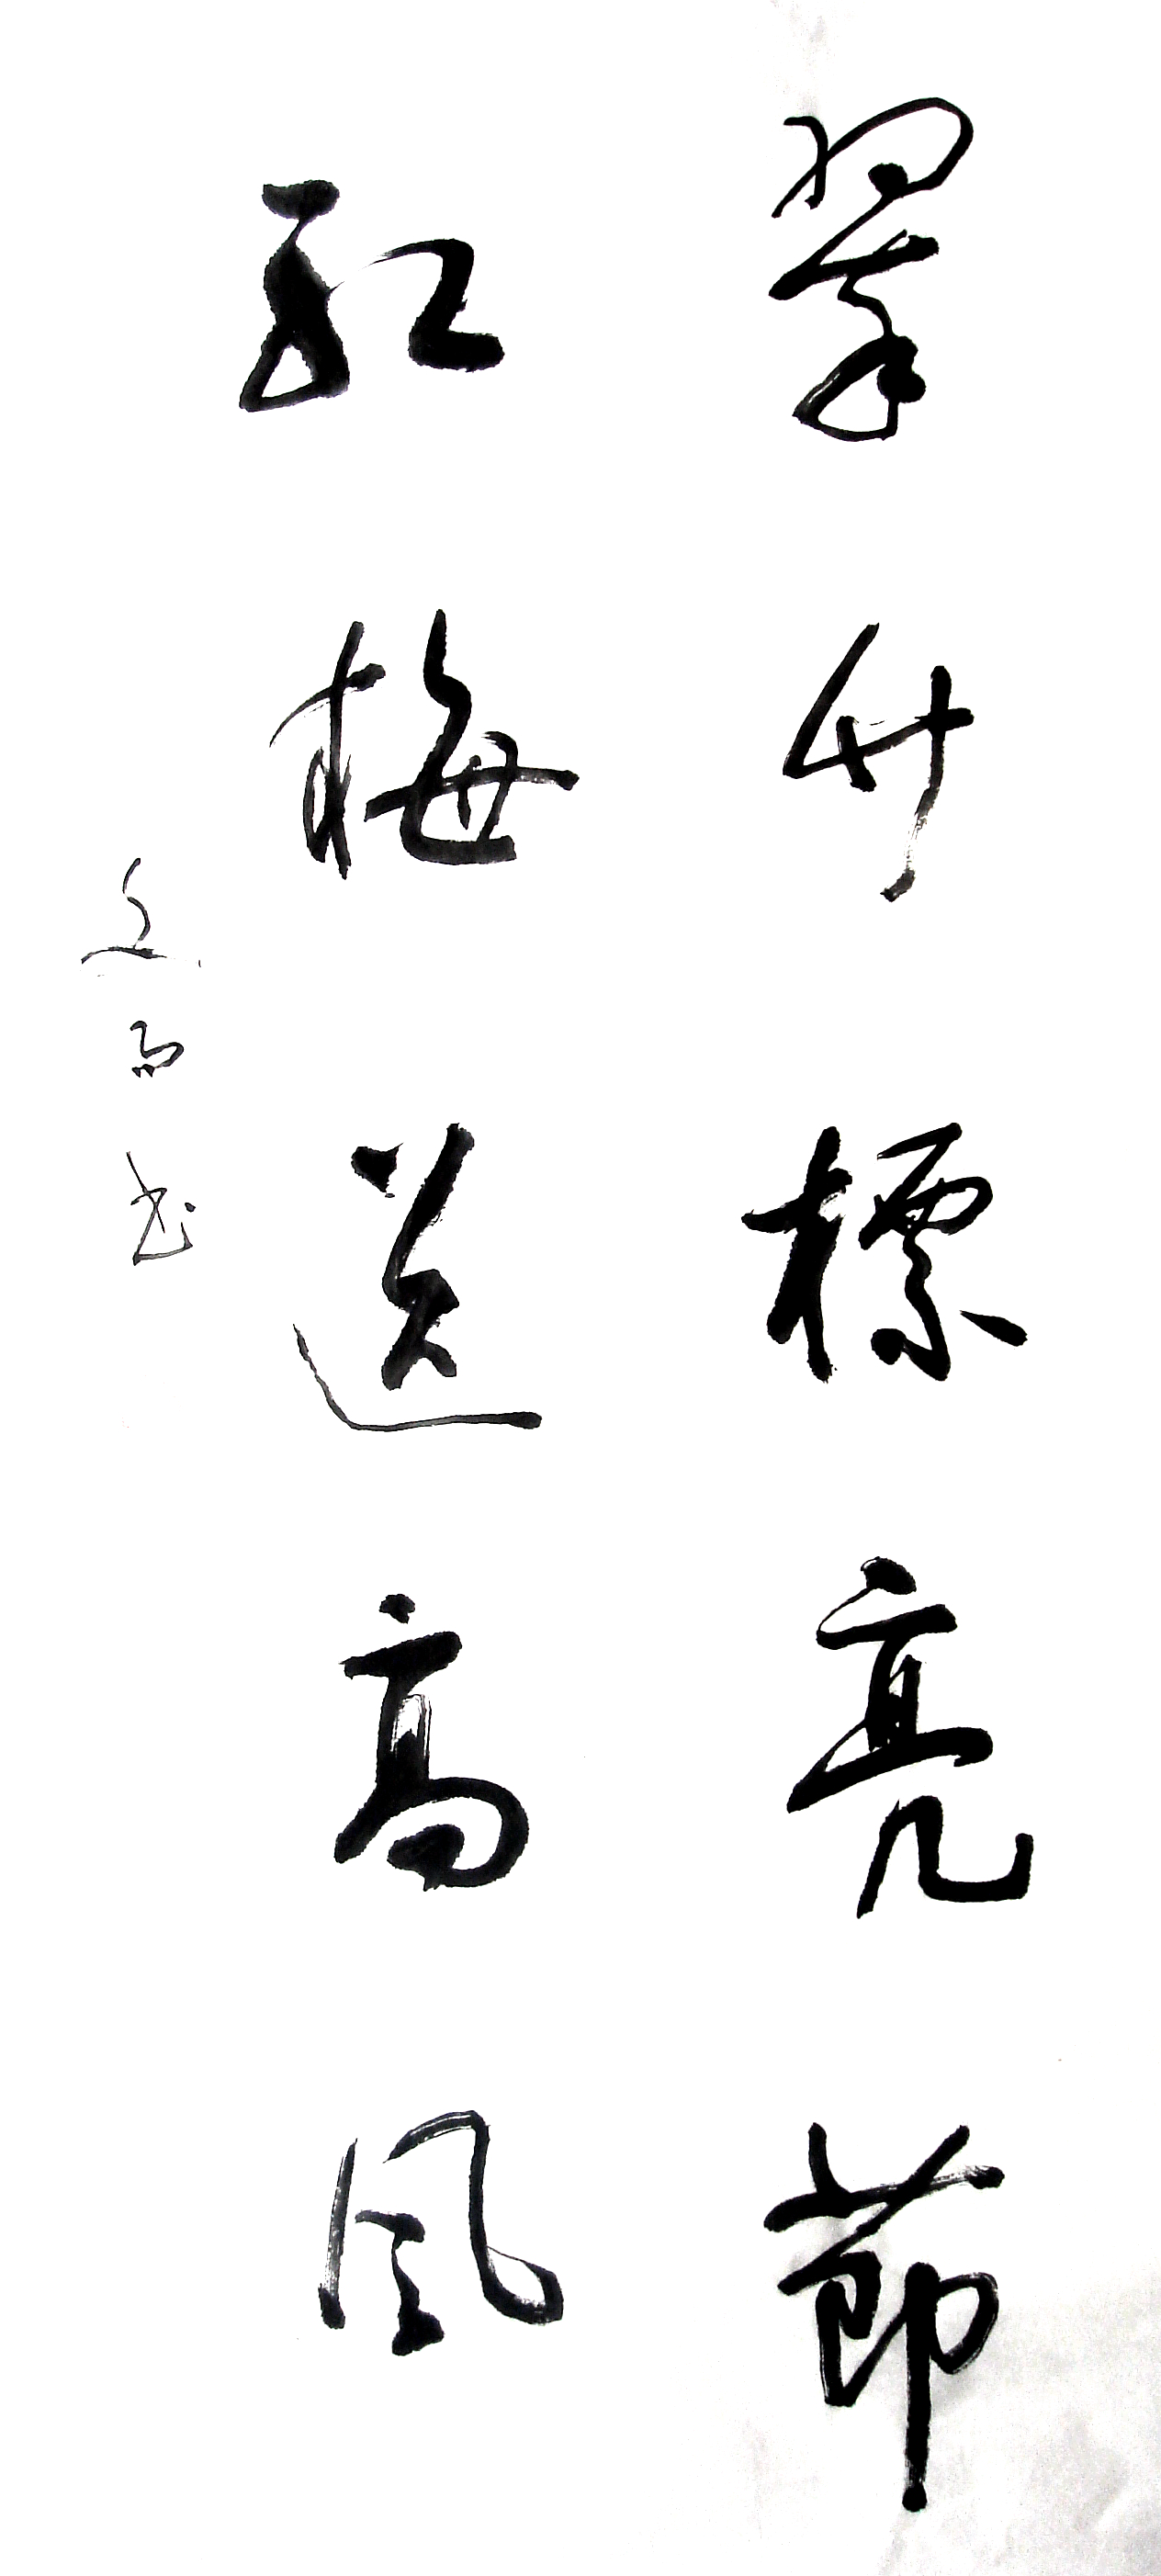 翠竹標亮節
紅梅送高風
书